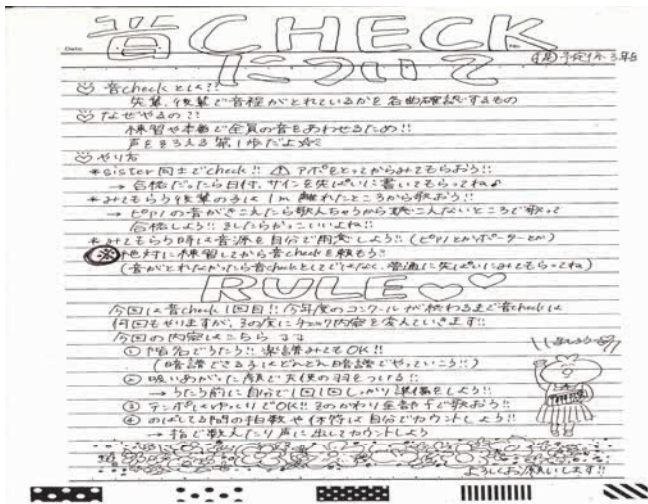 音CHECK
について
Date
No.
音checkとは??
先輩、後輩で音程がとれているかを各曲確認するもの
なぜやるの?!
練習や本番で全員の音をあわせるため!!
声をそろえる第1歩だよ
やり方
*sister同士でcheck!! ⚠アポをとってからみてもらおう!!
→合格だったら日付、サインを先ぱいに書いてもらってね♪
*みてもらう後輩の子は1m離れたところから歌おう!!
→ピアノの音がきこえたら歌えちゃうから聴こえないところで歌って
合格しよう!! そしたらかっこいいよね!!
*みてもらう時は音源を自分で用意しよう!! (ピアノとかポーターとか)
※絶対に練習してから音checkを頼もう!!
(音がとれなかったら音checkとしてではなく、普通に先ぱいにみてもらってね)
RULE♡♡
今回は音check1回目!! 今年度のコンクールが終わるまで音checkは
何回もやりますが、その度にチェック内容を変えていきます!!
今回の内容はこちら↓↓
① 階名でうたう!! 楽譜みてもOK!!
(暗譜できる子はどんどん暗譜でやっていこう!!)
② 吸いあがった顔で天使の羽をつける!!
→うたう前に自分で1回1回しっかり準備をしよう!!
③ テンポはゆっくりでOK!! そのかわり全部ffで歌おう!!
④ のばしてる間の拍数や休符は自分でカウントしよう!!
→指で数えたり声に出してカウントしよう
よろしくお願いします!!